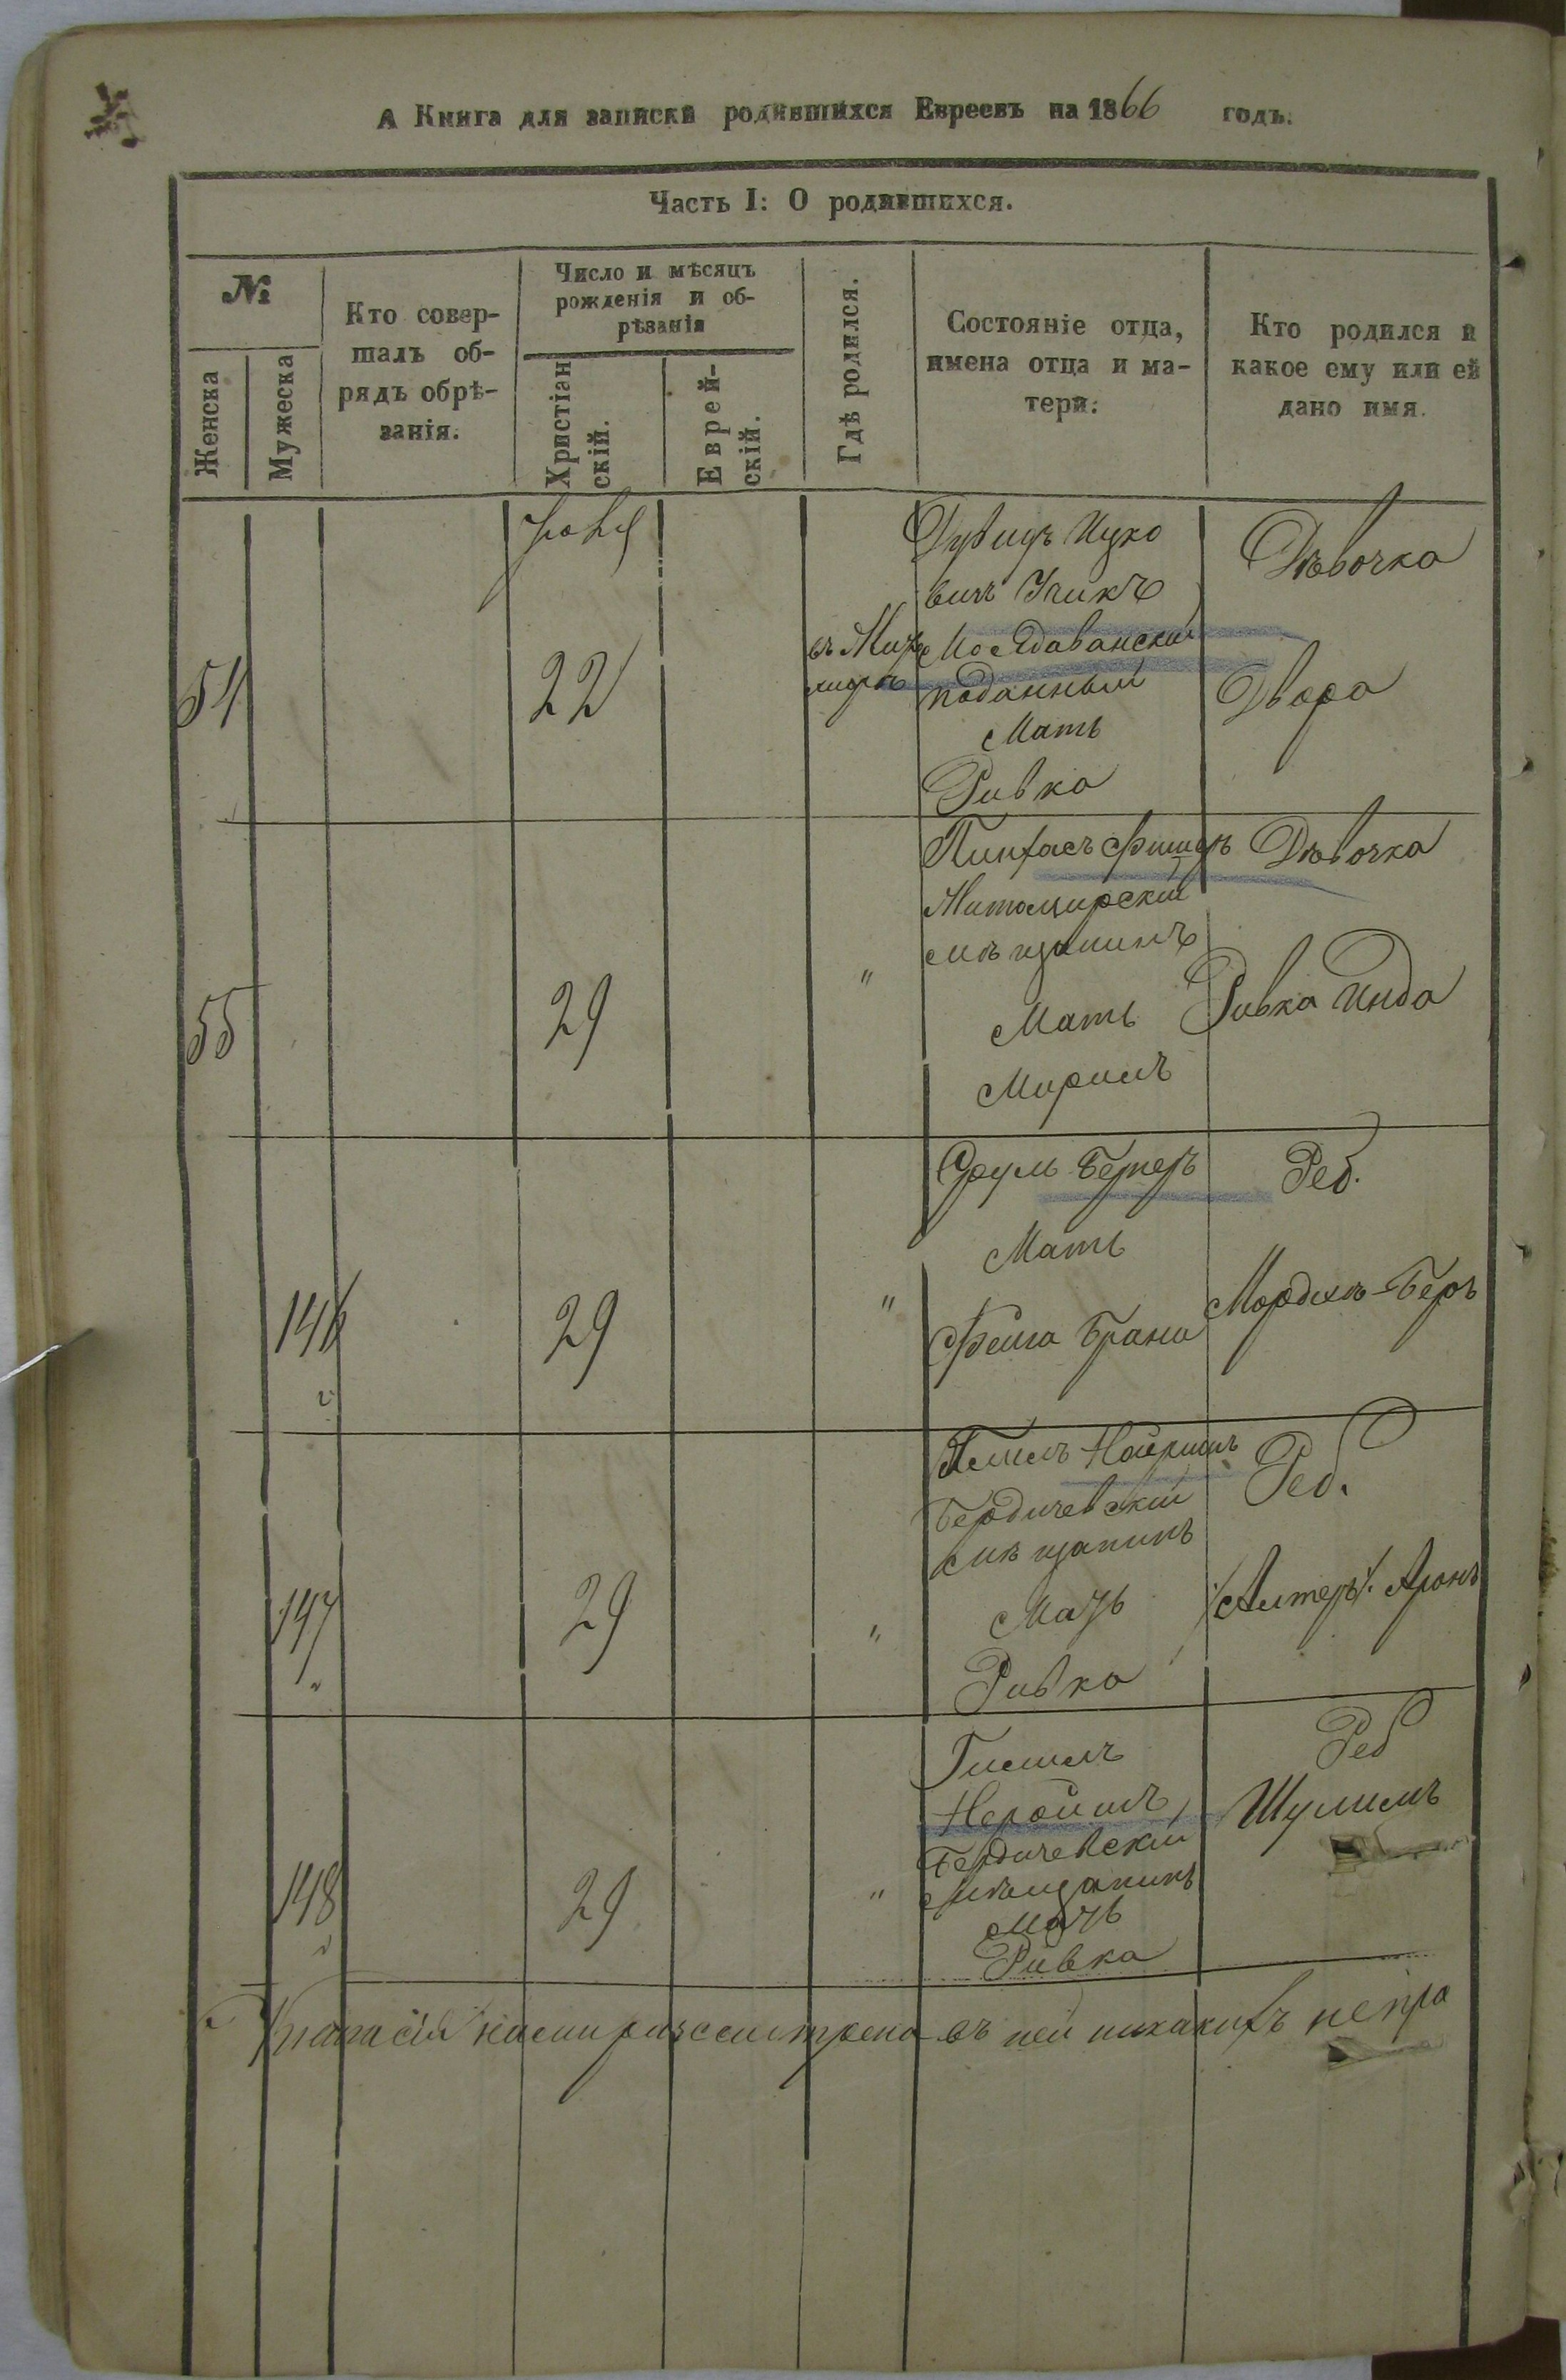 А Книга для записки родившихся Евреевъ на 1866 годъ.
Часть I: О родившихся.
№
Женска
Мужеска
Кто совер-
шалъ об-
рядъ обрѣ-
занія.
Число и мѣсяцъ
рожденія и об-
рѣзанія
Христіан
скій.
Еврей-
скій.
Гдѣ родился.
Состояніе отца,
имена отца и ма-
тери.
Кто родился и
какое ему или ей
дано имя.
54
22
въ Жит
мирѣ
Дувидъ Ицко
вичъ
Молдаванскій
поданный
Мать
Ривка
Дѣвочка
Двора
55
29
"
Пинхасъ Фишеръ
Житомирскій
мѣщанинъ
Мать
Миримъ
Дѣвочка
Ривка Инда
146
29
"
Сруль Бергеръ
Мать
Фейга Брана
Реб.
Мордхе-Беръ
147
29
"
Бердичевскій
мѣщанинъ
Мать
Ривка
Реб.
/Алтеръ/. Аронъ
148
29
"
Бердичевскій
Мѣщанинъ
Мать
Ривка
Реб
Шулимъ
нами разсмотрена въ ней никакихъ непра